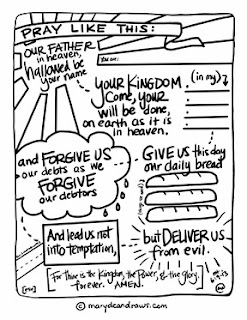 PRAY LIKE THIS:
OUR FATHER
in heaven,
hallowed be
your name
You are:
YOUR KINGDOM
Come, YOUR
will be done,
on earth as it is
in heaven.
(in my)
and FORGIVE US
our debts as we
FORGIVE
our debtors
GIVE US this day
our daily bread
And lead us not
into temptation,
but DELIVER US
from evil.
For thine is the Kingdom, the Power, & the glory,
forever. AMEN.
© marydeandraws.com